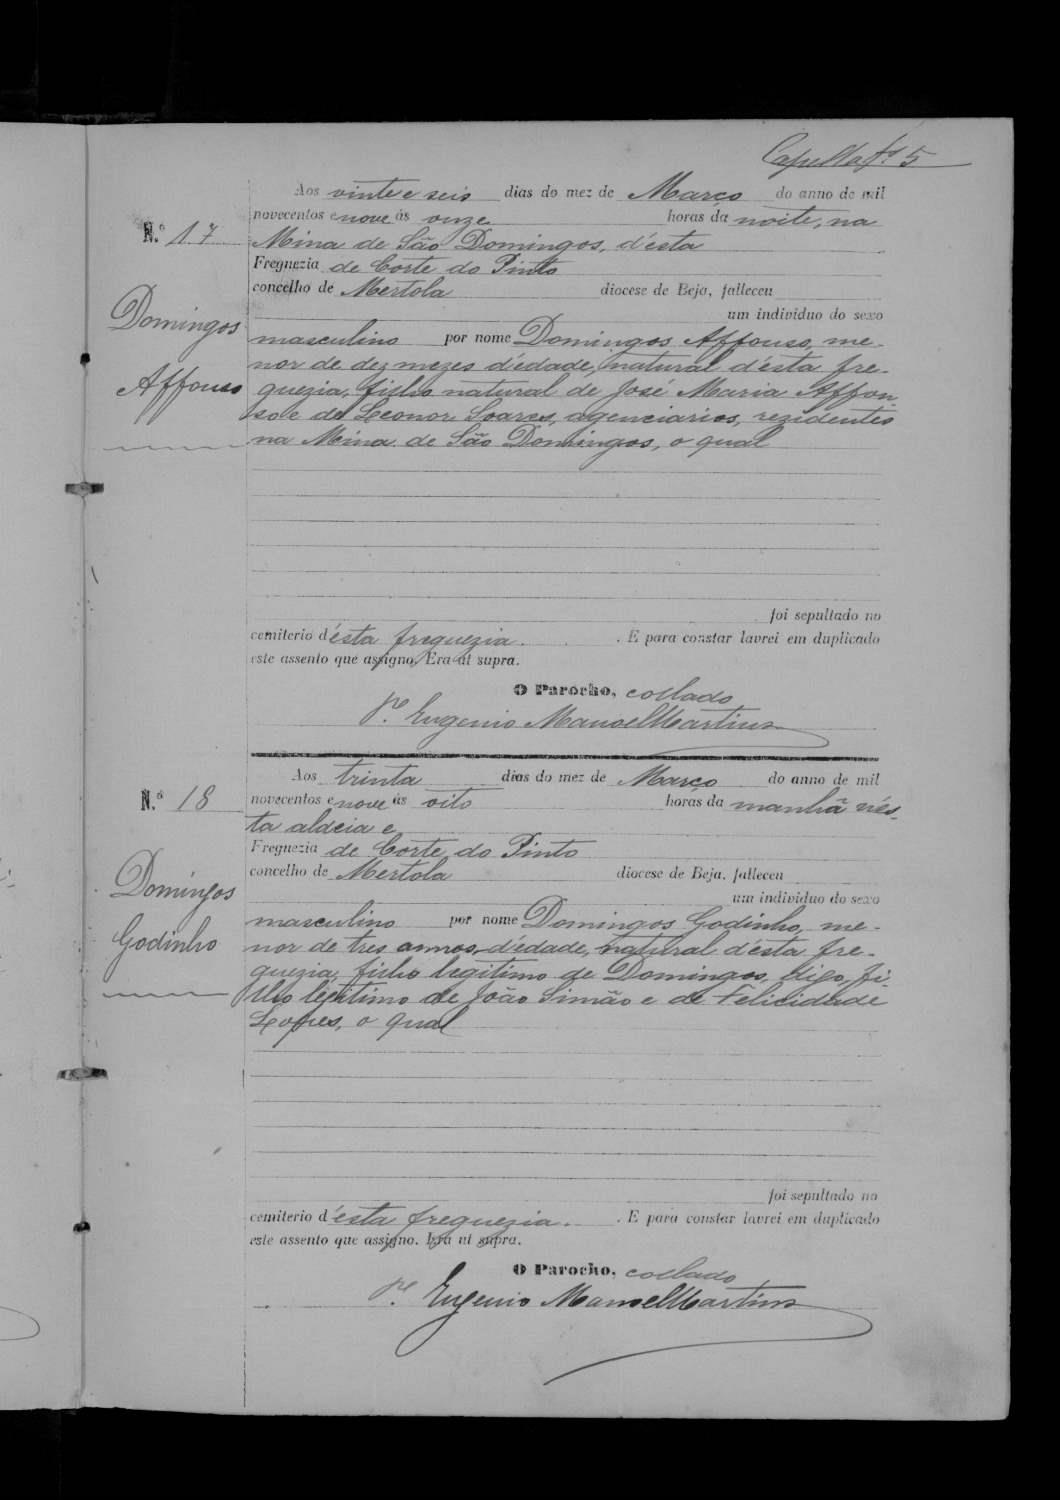 Capella fs 5
Aos vinte e seis dias do mez de Março do anno de mil
novecentos e nove ás onze horas da noite, na
N.º 17
Mina de São Domingos, d'ésta
Freguezia de Corte do Pinto
concelho de Mertola diocese de Beja, falleceu
um individuo do sexo
Domingos
Affonso
masculino por nome Domingos Affonso, me-
nor de dez mezes d'édade, natural d'ésta fre-
guezia, filho natural de José Maria Affon
so e de Leonor Soares, agenciarios, rezidentes
na Mina de São Domingos, o qual
foi sepultado no
cemiterio d'ésta freguezia. . E para constar lavrei em duplicado
este assento que assigno. Era ut supra.
O Parocho, collado
P.e Eugenio Manoel Martins
Aos trinta dias do mez de Março do anno de mil
novecentos e nove ás oito horas da manhã nés-
N.º 18
ta aldeia e
Freguezia de Corte do Pinto
concelho de Mertola diocese de Beja, falleceu
um individuo do sexo
Domingos
Godinho
masculino por nome Domingos Godinho, me-
nor de tres annos, d'édade, natural d'ésta fre-
guezia, filho legitimo de Domingos, digo, fi-
lho legitimo de João Simão e de Felicidade
Lopes, o qual
foi sepultado no
cemiterio d'ésta freguezia. . E para constar lavrei em duplicado
este assento que assigno. Era ut supra.
O Parocho, collado
P.e Eugenio Manoel Martins